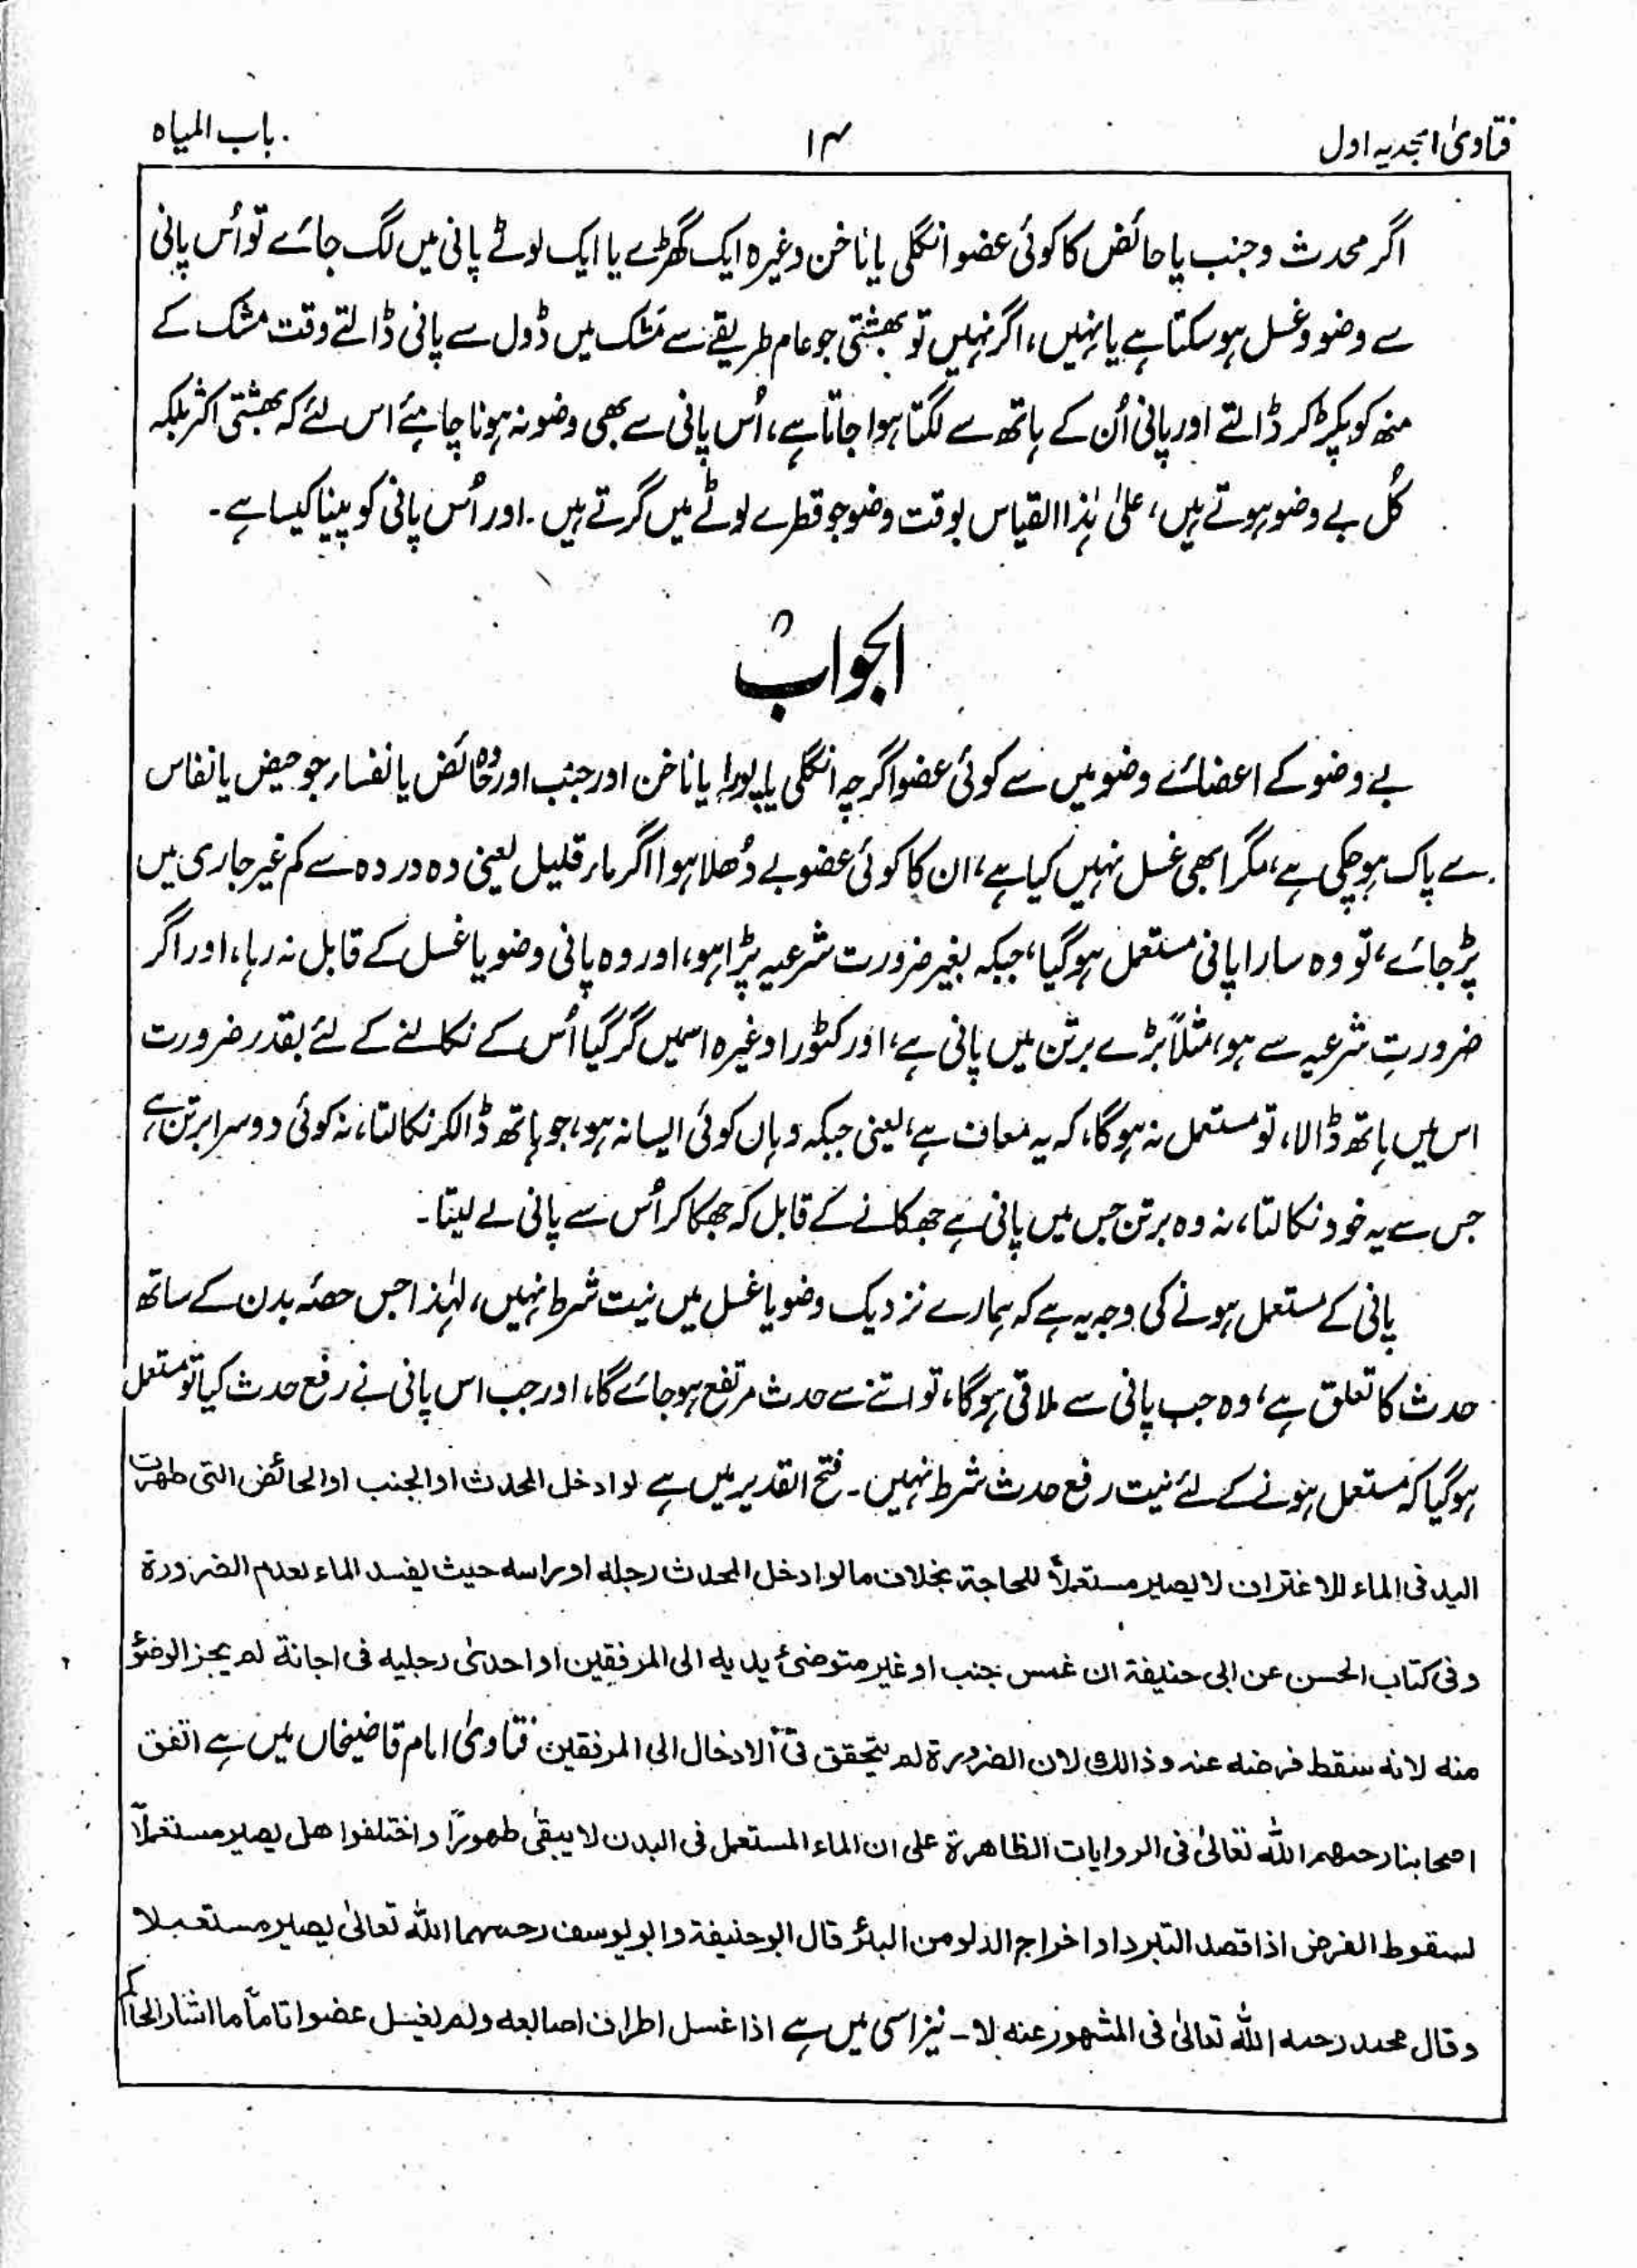 فتاویٰ امجدیہ اول
۱۴
باب المیاہ
اگر محدث و جنب یا حائض کا کوئی عضو انگلی یا ناخن وغیرہ ایک گھڑے یا ایک لوٹے پانی میں لگ جائے تو اُس پانی
سے وضو وغسل ہوسکتا ہے یا نہیں، اگر نہیں تو بھشتی جو عام طریقے سے مَشک میں ڈول سے پانی ڈالتے وقت مشک کے
منھ کو پکڑ کر ڈالتے اور پانی اُن کے ہاتھ سے لگتا ہوا جاتا ہے، اُس پانی سے بھی وضو نہ ہونا چاہیئے اس لئے کہ بھشتی اکثر بلکہ
کُل بے وضو ہوتے ہیں، علیٰ ہٰذا القیاس بوقت وضو جو قطرے لوٹے میں گرتے ہیں۔ اور اُس پانی کو پینا کیسا ہے۔
الجواب
بے وضو کے اعضائے وضو میں سے کوئی عضو اگرچہ انگلی یا پورا یا ناخن اور جنب اور وہ حائض یا نفساء جو حیض یا نفاس
سے پاک ہوچکی ہے، مگر ابھی غسل نہیں کیا ہے، ان کا کوئی عضو بے دُھلا ہوا اگر ماء قلیل یعنی دہ در دہ سے کم غیر جاری میں
پڑ جائے، تو وہ سارا پانی مستعمل ہوگیا، جبکہ بغیر ضرورت شرعیہ پڑا ہو، اور وہ پانی وضو یا غسل کے قابل نہ رہا، اور اگر
ضرورتِ شرعیہ سے ہو، مثلاً بڑے برتن میں پانی ہے، اور کٹورا وغیرہ اسمیں گر گیا اُس کے نکالنے کے لئے بقدر ضرورت
اس میں ہاتھ ڈالا، تو مستعمل نہ ہوگا، کہ یہ معاف ہے، یعنی جبکہ وہاں کوئی ایسا نہ ہو، جو ہاتھ ڈالکر نکالتا، نہ کوئی دوسرا برتن ہے
جس سے یہ خود نکالتا، نہ وہ برتن جس میں پانی ہے جھکانے کے قابل کہ جھکا کر اُس سے پانی لے لیتا۔
پانی کے مستعمل ہونے کی وجہ یہ ہے کہ ہمارے نزدیک وضو یا غسل میں نیت شرط نہیں، لہٰذا جس حصۂ بدن کے ساتھ
حدث کا تعلق ہے، وہ جب پانی سے ملاقی ہوگا، تو اتنے سے حدث مرتفع ہوجائے گا، اور جب اس پانی نے رفع حدث کیا تو مستعمل
ہوگیا کہ مستعمل ہونے کے لئے نیت رفع حدث شرط نہیں۔ فتح القدیر میں ہے لو ادخل المحدث او الجنب او الحائض التی طھرت
الید فی الماء للاغتراف لا یصیر مستعملاً للحاجة بخلاف مالو ادخل المحدث رجله او راسه حیث یفسد الماء لعدم الضرورة
وفی کتاب الحسن عن ابی حنیفة ان غمس جنب او غیر متوضئ یدیه الی المرفقین او احدیٰ رجلیه فی اجانة لم یجز الوضؤ
منه لانه سقط فرضه عنه وذالك لان الضرورة لم یتحقق فی الادخال الی المرفقین فتاویٰ امام قاضیخاں میں ہے اتفق
اصحابنا رحمھم اللہ تعالیٰ فی الروایات الظاھرة علی ان الماء المستعمل فی البدن لا یبقیٰ طھورًا واختلفوا ھل یصیر مستعملاً
لسقوط الفرض اذا قصد التبرد او اخراج الدلو من البئر قال ابو حنیفة وابو یوسف رحمہما اللہ تعالیٰ یصیر مستعملا
وقال محمد رحمه اللہ تعالیٰ فی المشھور عنه لا۔ نیز اسی میں ہے اذا غسل اطراف اصابعه ولم یغسل عضوا تاماً ما اشار الحاکم